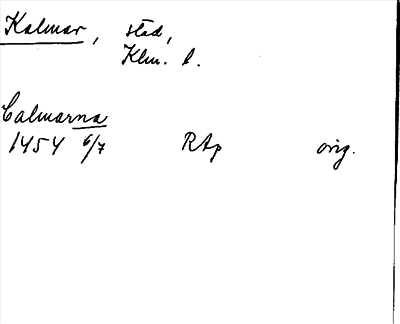 Kalmar, stad,
Klm. l.
Calmarna
1454 6/7 RAp orig.